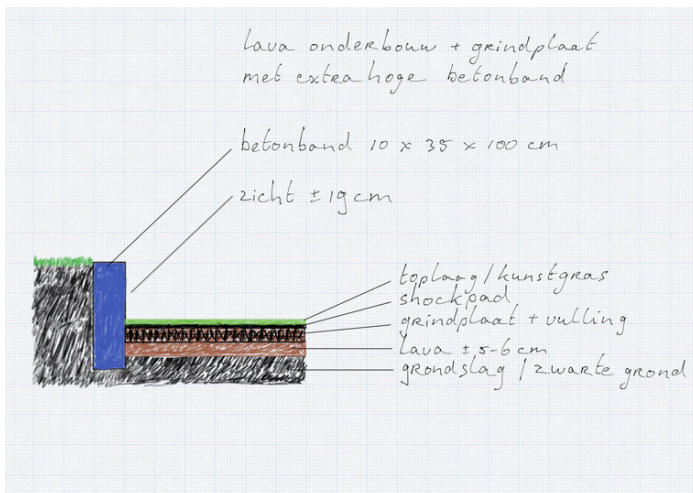 lava onderbouw + grindplaat
met extra hoge betonband
betonband 10 x 35 x 100 cm
zicht ± 19 cm
toplaag / kunstgras
shockpad
grindplaat + vulling
lava ± 5-6 cm
grondslag / zwarte grond